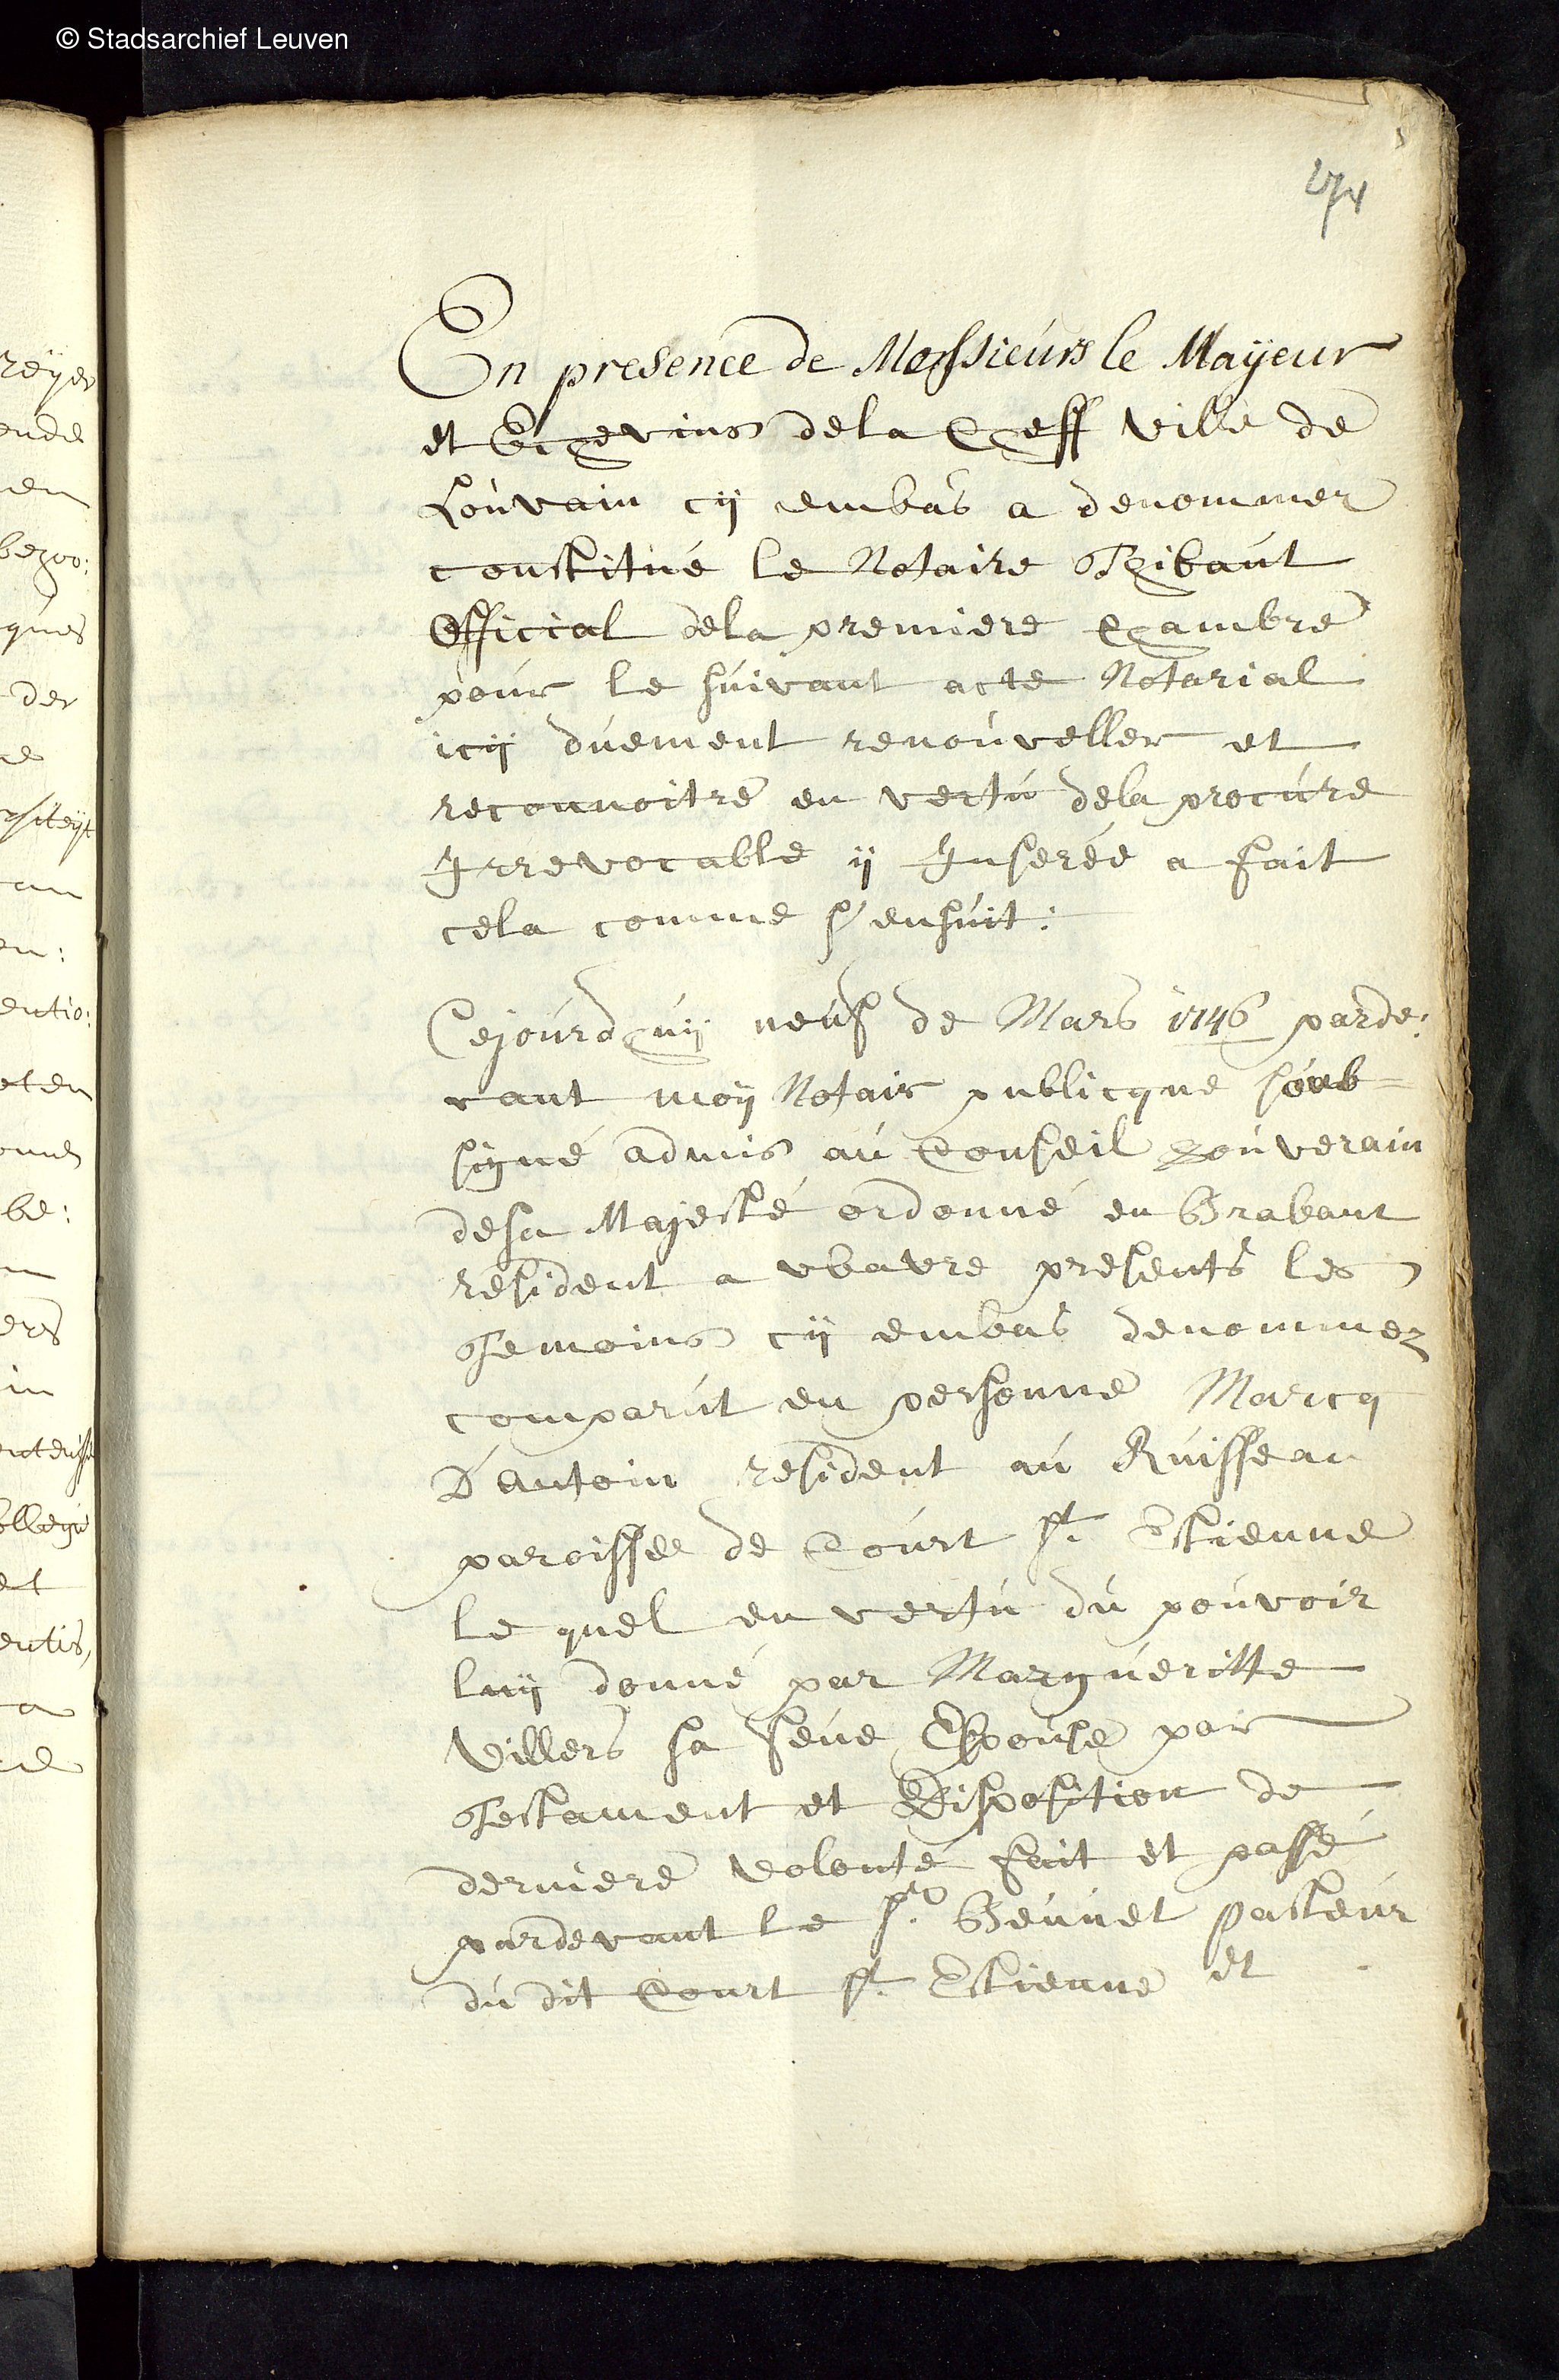 © Stadsarchief Leuven
274
En presence de Messieurs le Maÿeur
et Echevins dela Cheff ville de
Louvain cÿ embas a denommer
constitué le Notaire Thibaut
Official dela premiere chambre
pour le suivant acte Notarial
icÿ duement renouveller et
reconnoitre en vertu dela procure
Irrevocable ÿ Inserée a fait
cela comme s'ensuit:
Cejourdhuÿ neuf de Mars 1746 parde:
vant moÿ Notair publicque soub=
signé admis au Conseil souverain
desa Majesté ordonné en Brabant
resident a wavre presents les
Temoins cÿ embas denommez
comparut en personne Marcq
D'antoin resident au Ruisseau
paroisse de Court St. Estienne
le quel en vertu du pouvoir
luÿ donné par Margueritte
Villers sa feue Epouse par
Testament et Disposition de
derniere volonté fait et passé
pardevant le Sr. pasteur
du dit Court St. Estienne et
reÿer
ende
en
bezoo:
ques
der
an
en:
entio:
eten
be:
ers
in
et
entis,